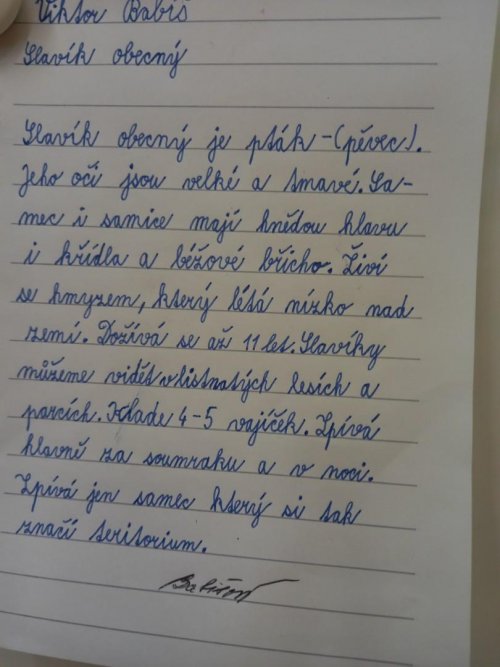 Viktor Babiš
Slavík obecný
Slavík obecný je pták -(pěvec).
Jeho oči jsou velké a tmavé. Sa-
mec i samice mají hnědou hlavu
i křídla a béžové břicho. Živí
se hmyzem, který létá nízko nad
zemí. Dožívá se až 11 let. Slavíky
můžeme vidět v listnatých lesích a
parcích. Klade 4-5 vajíček. Zpívá
hlavně za soumraku a v noci.
Zpívá jen samec který si tak
značí teritorium.